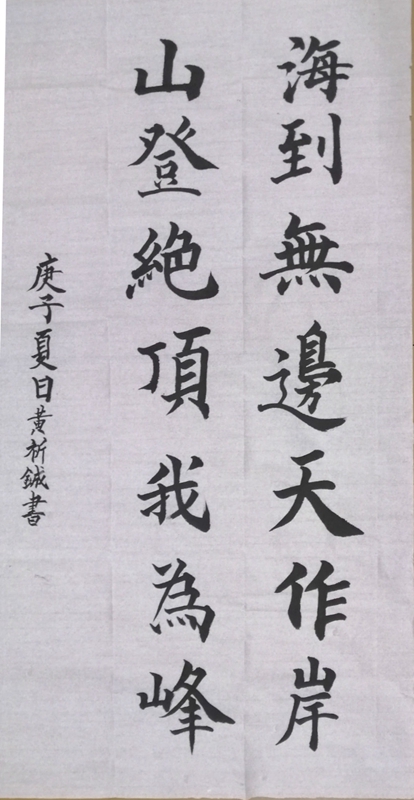 海到無邊天作岸
山登絶頂我為峰
庚子夏日黄祈鋮書